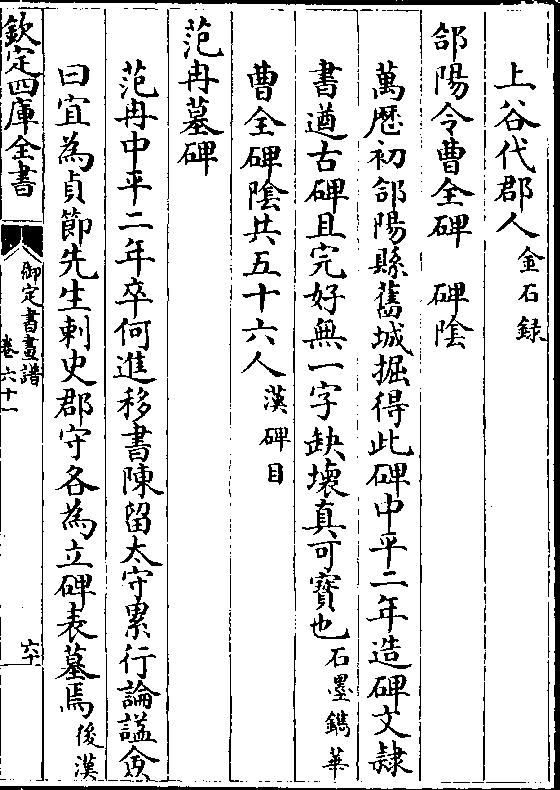 上谷代郡人金石録
郃陽令曹全碑　碑陰
萬歴初郃陽縣舊城掘得此碑中平二年造碑文隷
書遒古碑且完好無一字缺壞真可寶也石墨鐫華
曹全碑陰共五十六人漢碑目
范冉墓碑
范冉中平二年卒何進移書陳留太守累行論諡僉
曰宜為貞節先生刺史郡守各為立碑表墓焉後漢
欽定四庫全書
御定書畫譜
卷六十一
六十